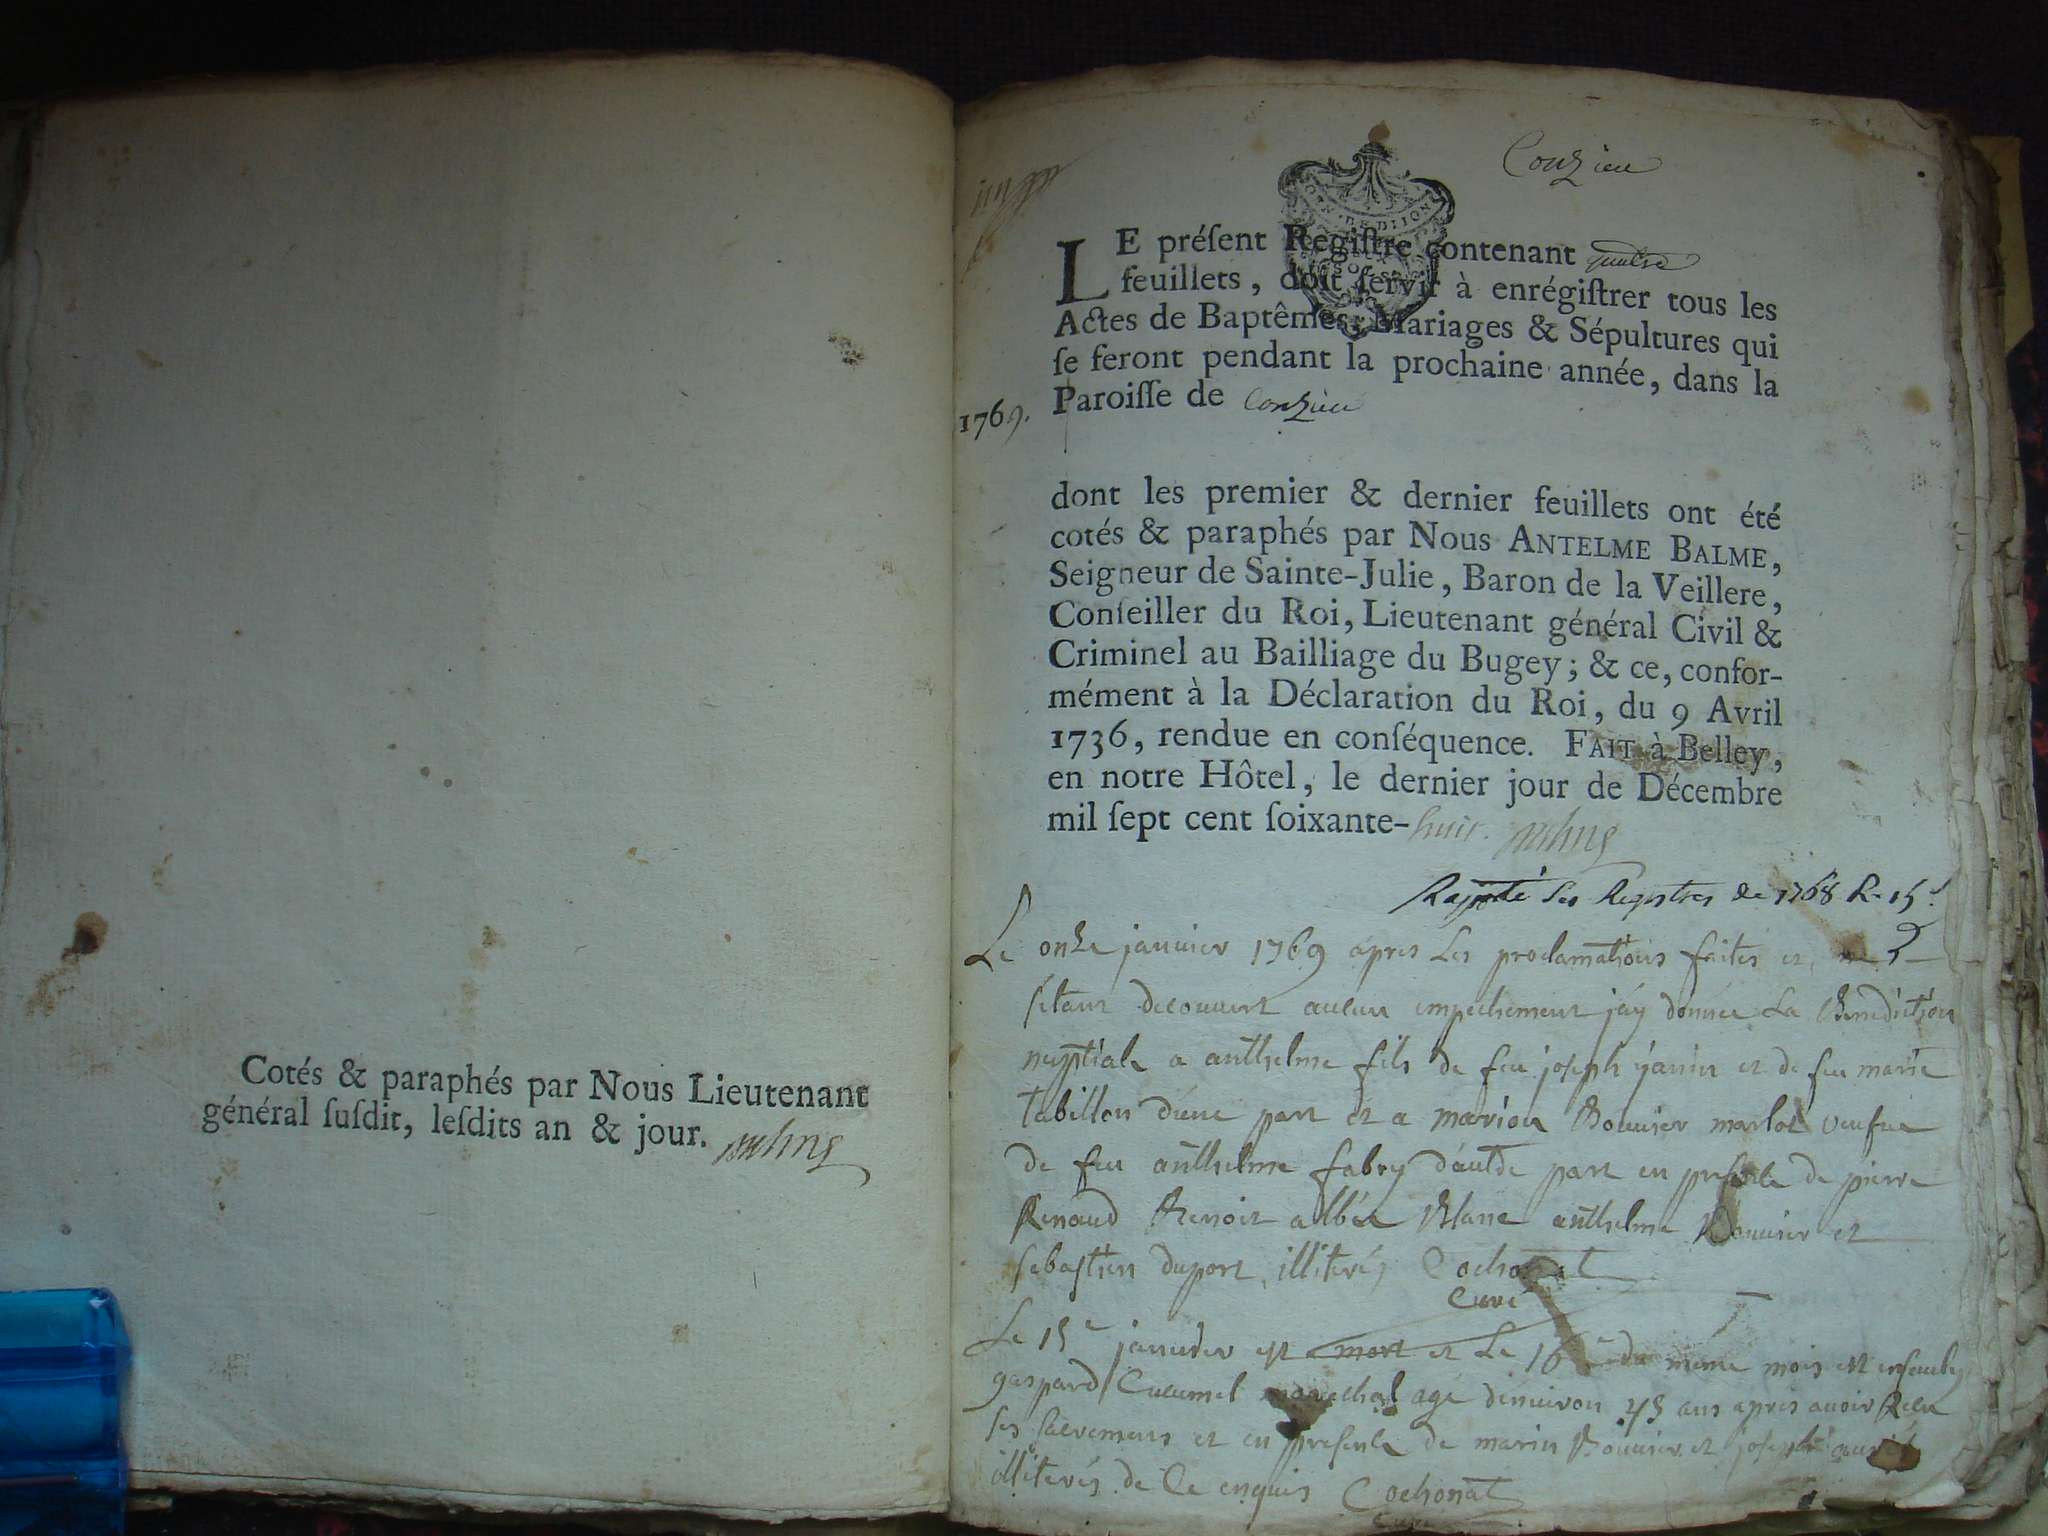 Cotés & paraphés par Nous Lieutenant
général ſuſdit, leſdits an & jour.
Conzieu
LE préſent Regiſtre contenant quatre
feuillets, doit ſervir à enrégiſtrer tous les
Actes de Baptêmes, Mariages & Sépultures qui
ſe feront pendant la prochaine année, dans la
Paroiſſe de Conzieu
1769.
dont les premier & dernier feuillets ont été
cotés & paraphés par Nous ANTELME BALME,
Seigneur de Sainte-Julie, Baron de la Veillere,
Conſeiller du Roi, Lieutenant général Civil &
Criminel au Bailliage du Bugey; & ce, confor-
mément à la Déclaration du Roi, du 9 Avril
1736, rendue en conſéquence. FAIT à Belley,
en notre Hôtel, le dernier jour de Décembre
mil ſept cent ſoixante-huit.
les Registres de 1768
Le onze janvier 1769 apres les proclamations faites et ne
sétant decouvert aucun empechement jáy donnée La Benediction
nuptiale a anthelme fils de feu joseph janin et de feu marie
tabillon dúne part et a marion Bouvier marlot veufve
de feu anthelme fabry dáutde part en presence de pierre
Renaud Benoit Blanc anthelme Bouvier et
sebastien duport illiterés Cochonat
Curé
Le 15e janvier est mort et Le 16e du meme mois est ensevely
gaspard Cucumel marechal agé denviron 45 ans apres avoir Recu
ses sacremens et en presence de marin Bouvier et joseph
illiterés de Ce enquis Cochonat
Curé